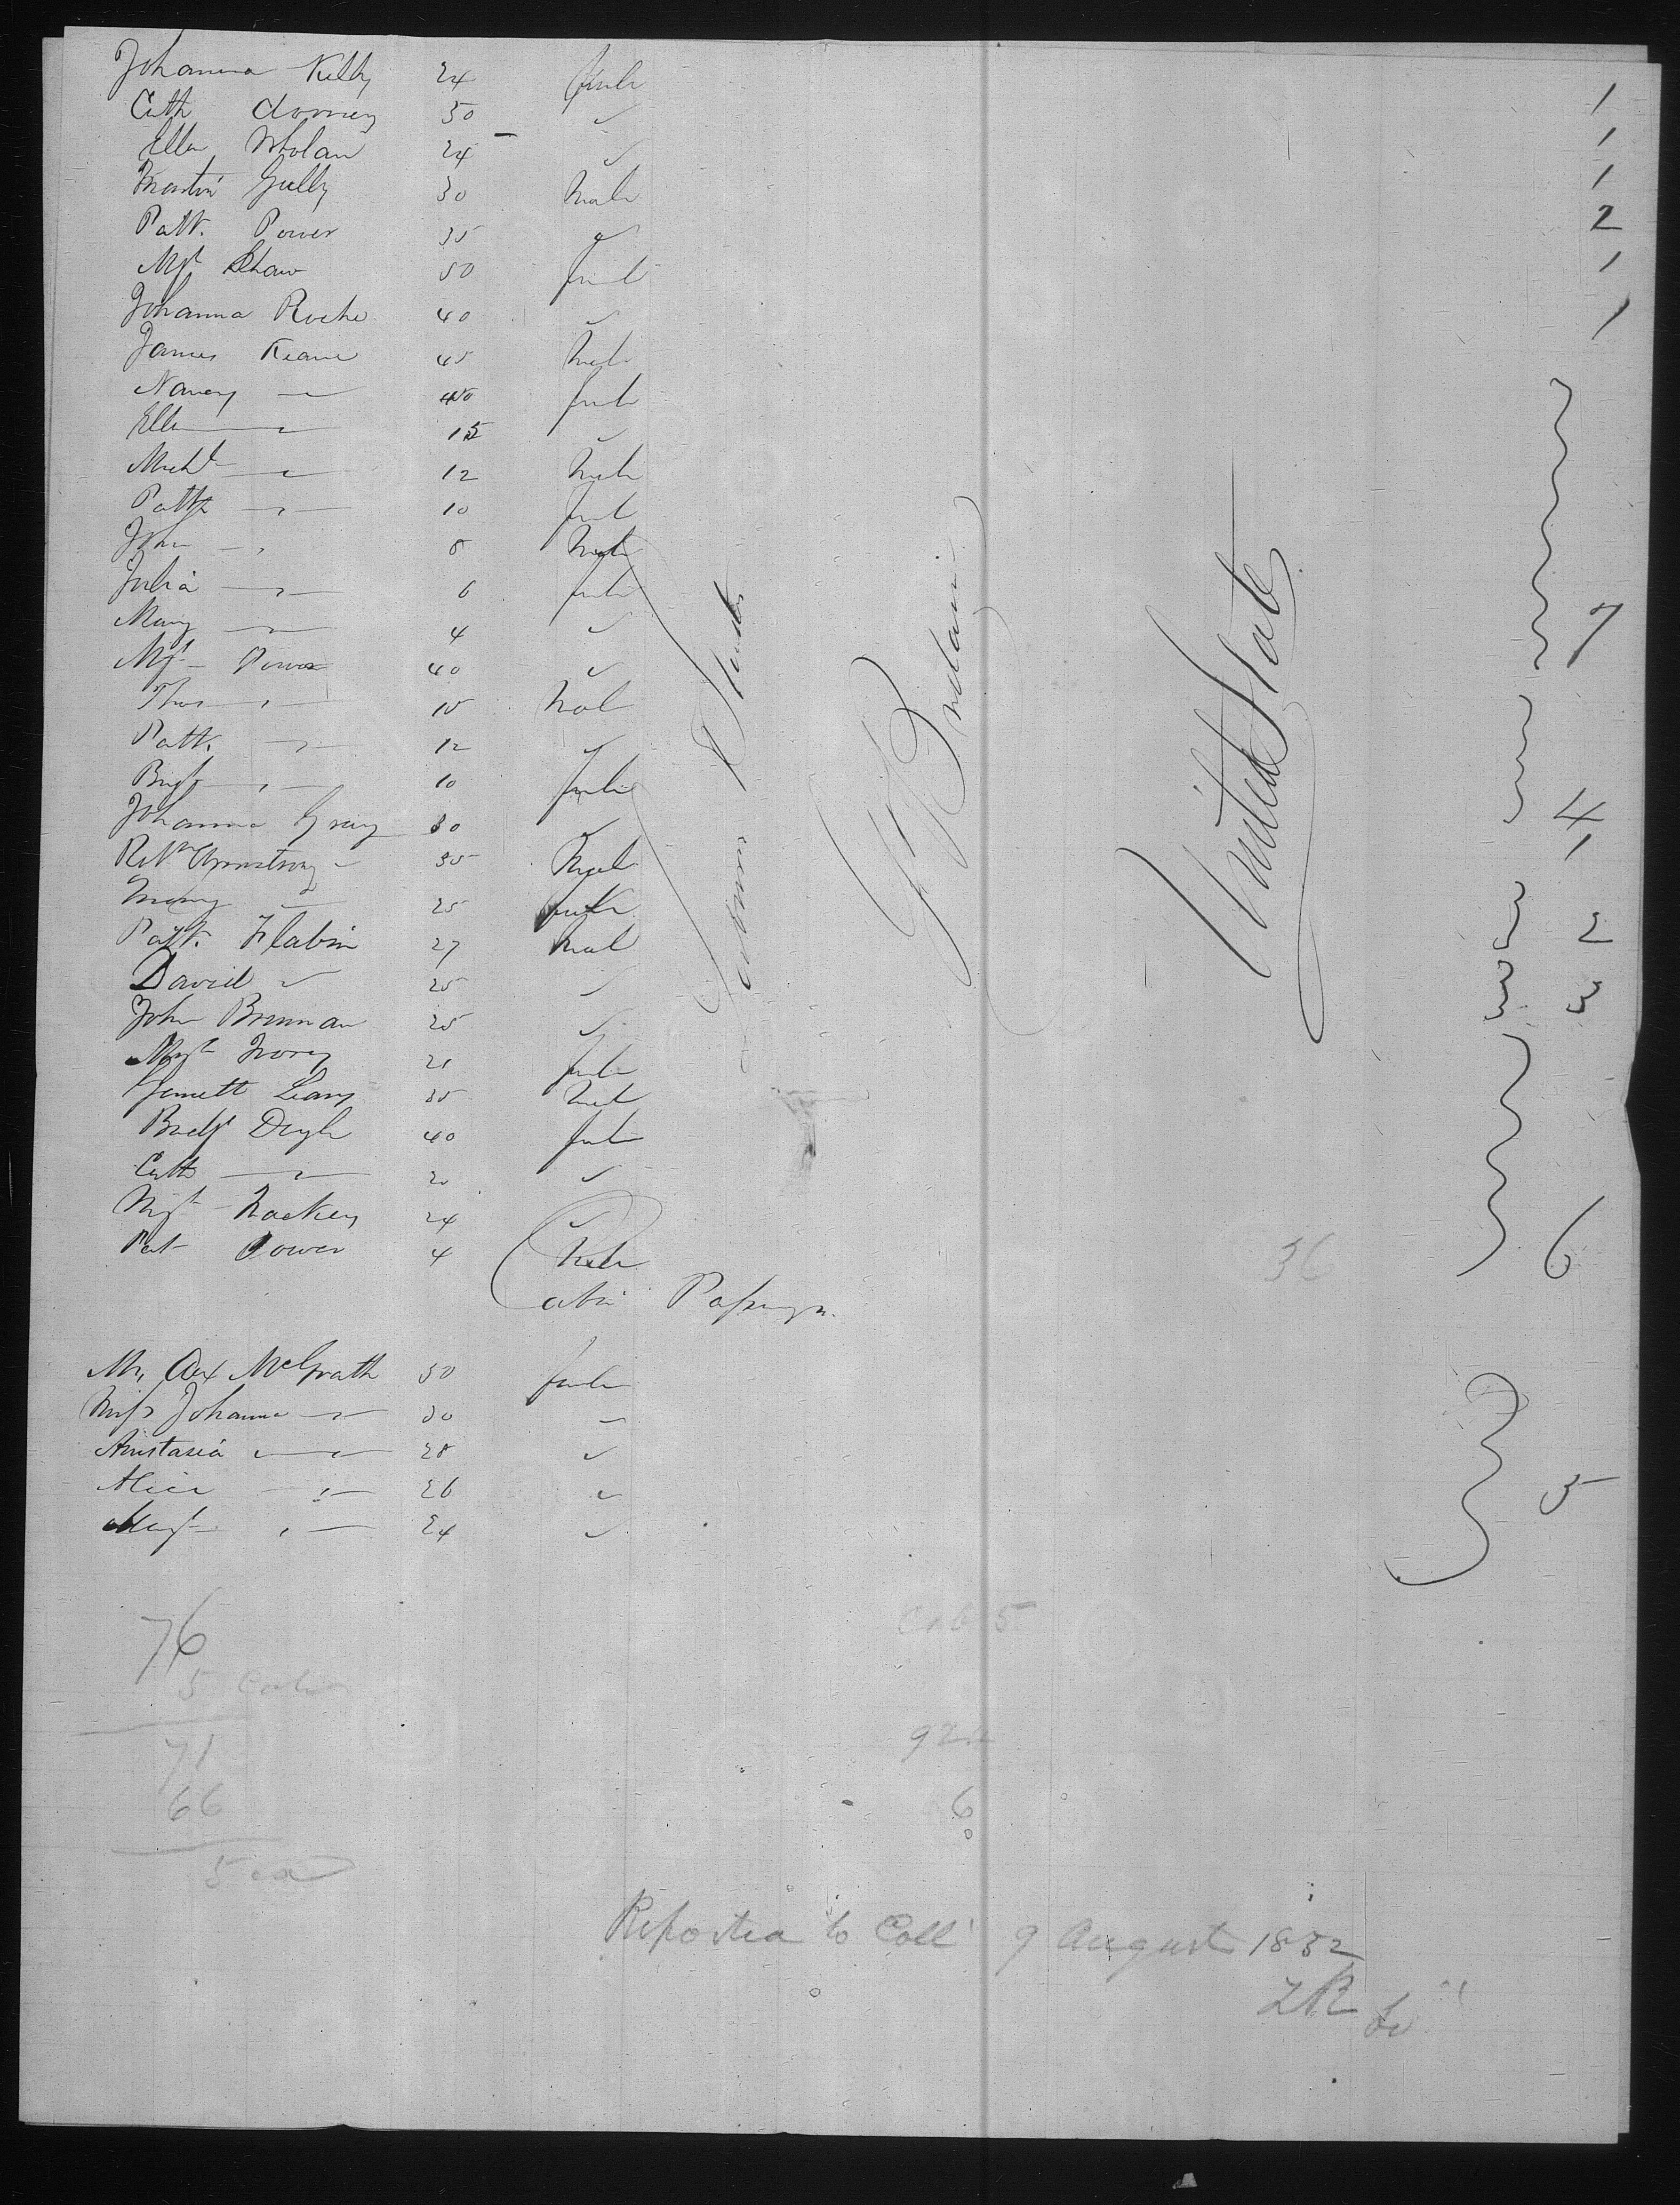 Johanna Kelly 24 female 1
Cath Clooney 30 ✓ 1
Ellen Wholan 24 ✓ 1
Martin Gully 30 Male 2
Patt. Power 35 ✓ 1
Mgt Shaw 50 female 1
Johanna Roche 40 ✓
James Keane 45 Male
Nancy — 40 female
Ellen — 15 ✓
Michl — 12 Male
Patt — 10
John — 8 Male
Julia — 6 female
Mary — 4 ✓ 7
Mgt Power 40 ✓
Thos — 15 Male
Patt. — 12 ✓
Bridgt — 10 female 4
Johanna Gray 30 ✓ 1
Armstrong 35 Male
Mary — 25 female 2
Patt. Flabin 27 Male
David ✓ 25 ✓ 3
John Brennan 25 ✓
Mgt Ivory 21 female
Leary 35 Male
Bridgt Doyle 40 female
Cath — 20 ✓
Mgt Mackey 24 ✓
Pat Power 4 Male 36 6
G Britain
United States
Cabin Passengrs.
McGrath 50 female
Miss Johanna — 30 ✓
Anastasia — 28 ✓
Alice — 26 ✓ 5
Margt — 24 ✓
76
5 Cabin
71
66
5
Cab 5
92
6
Reported to Coll 9 August 1832